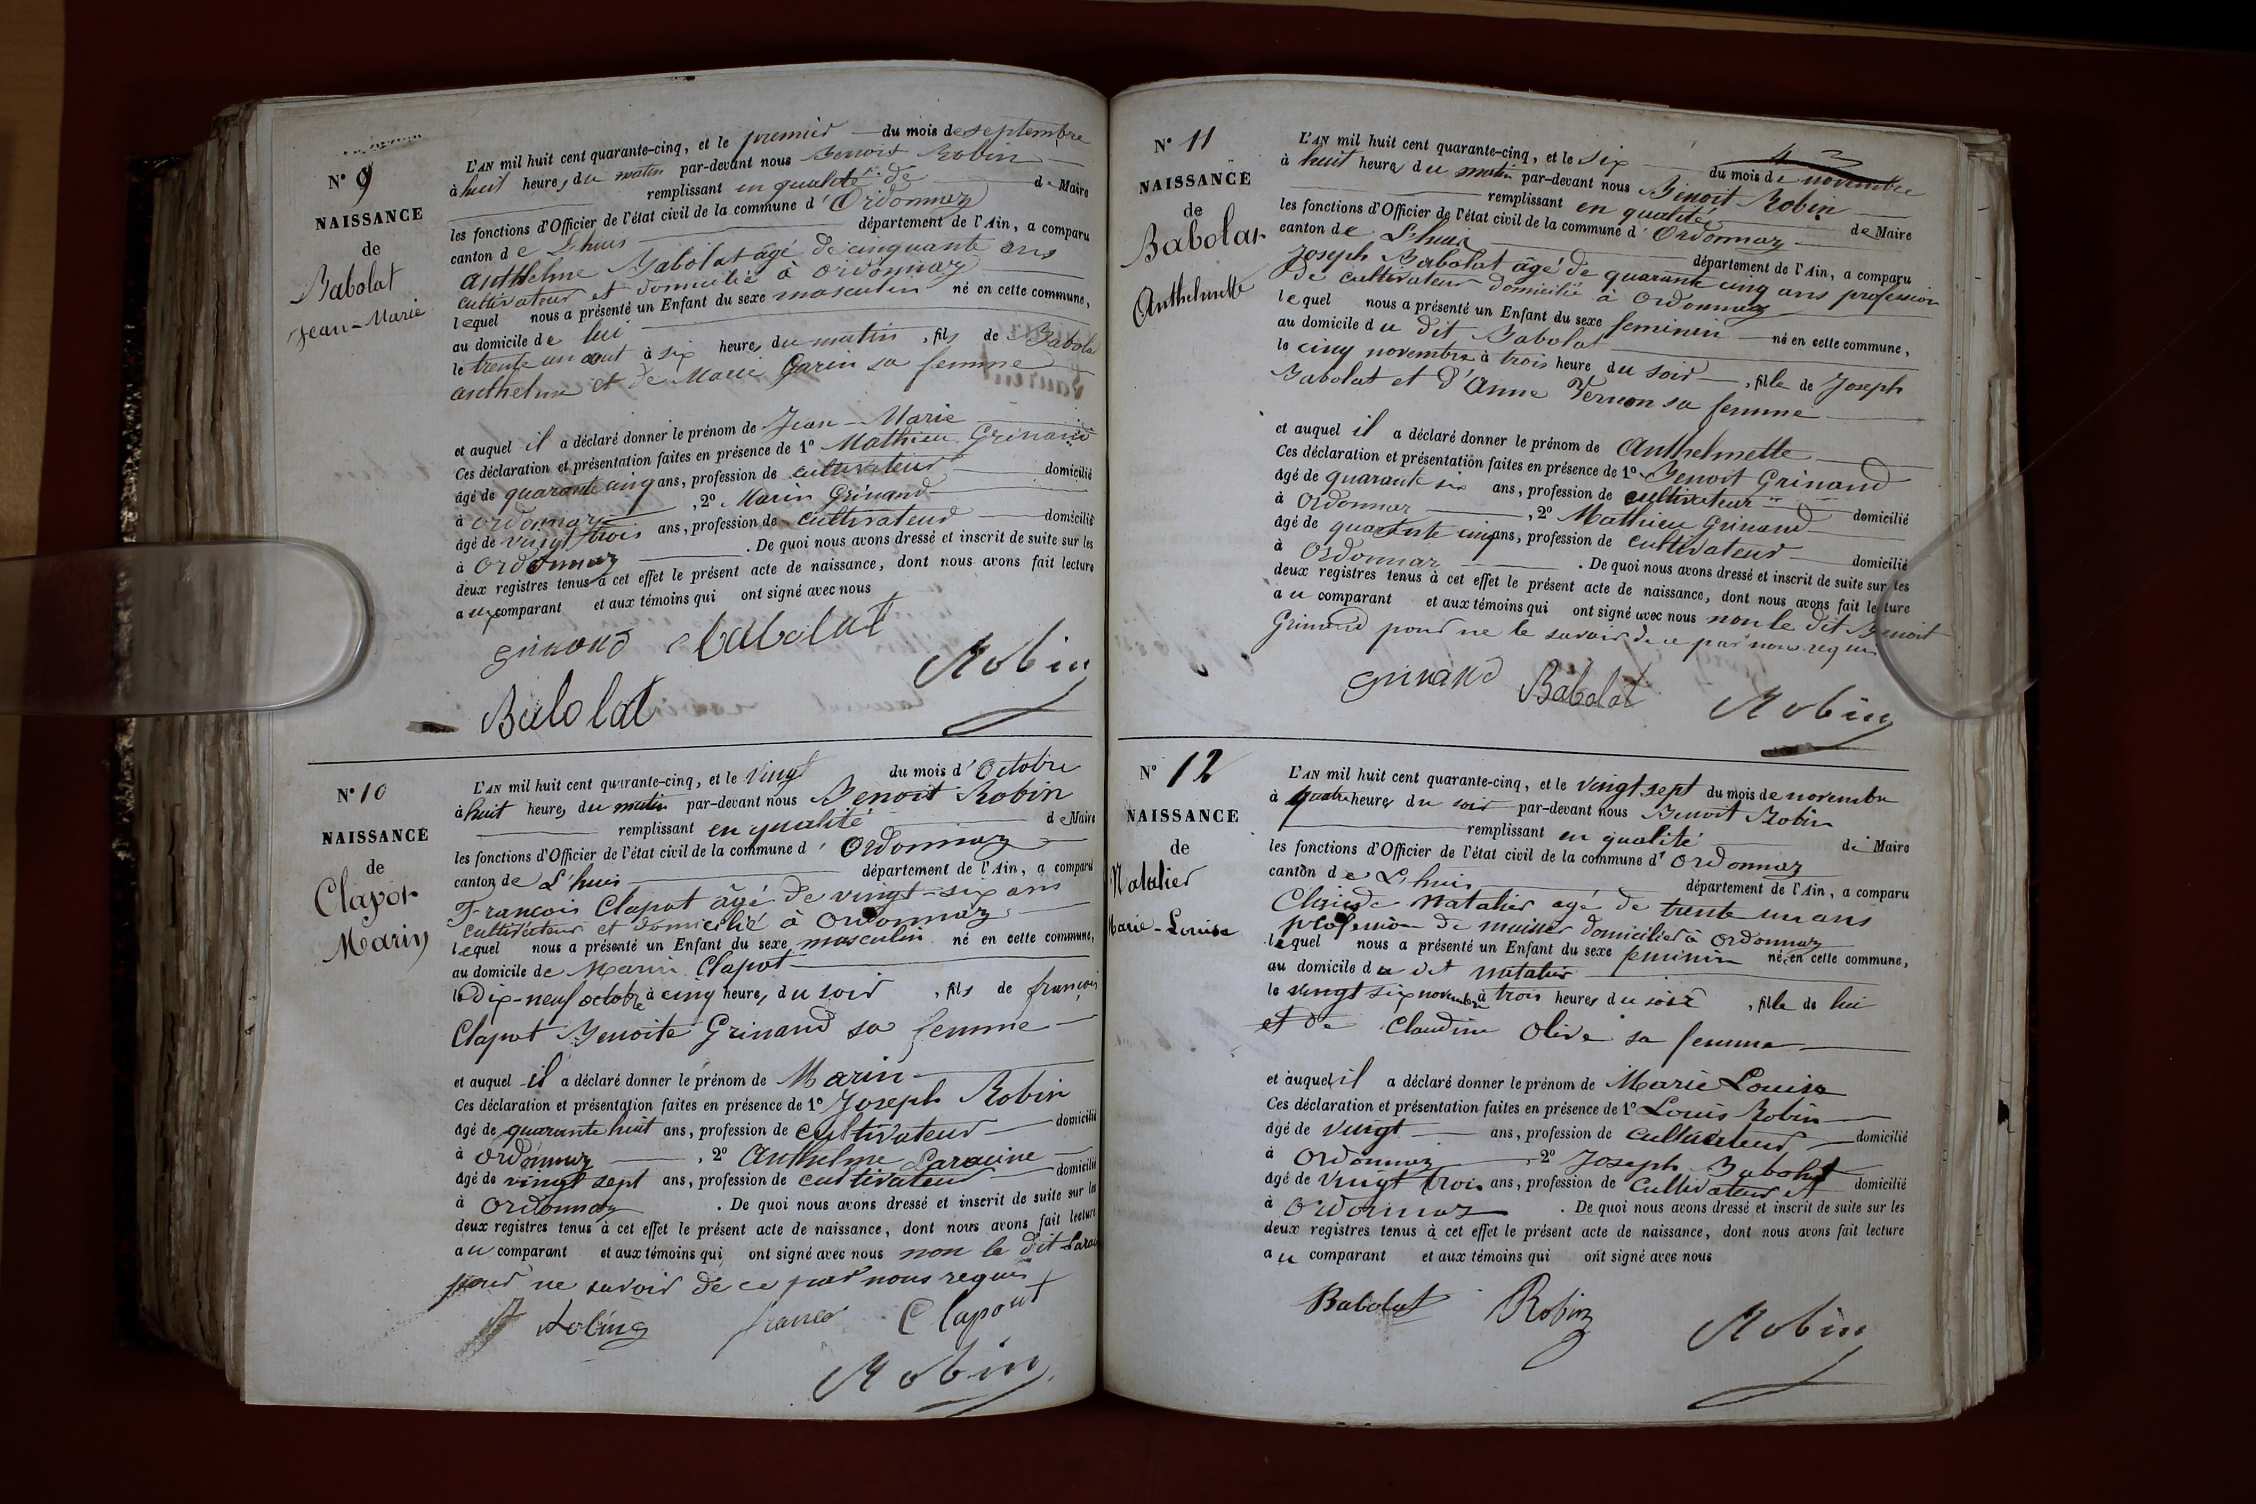 N° 9
NAISSANCE
de
Babolat
Jean-Marie
L'AN mil huit cent quarante-cinq, et le premier du mois de septembre
à huit heures du matin par-devant nous Benoit Robin
remplissant en qualité de de Maire
les fonctions d'Officier de l'état civil de la commune d'Ordonnaz
canton de L'huis département de l'Ain, a comparu
Anthelme Babolat âgé de cinquante ans
cultivateur et domicilié à Ordonnaz
lequel nous a présenté un Enfant du sexe masculin né en cette commune,
au domicile de lui
le trente un aout à six heures du matin, fils de Babolat
anthelme et de Marie Garin sa femme
et auquel il a déclaré donner le prénom de Jean-Marie
Ces déclaration et présentation faites en présence de 1° Mathieu Grinand
âgé de quarante cinq ans, profession de cultivateur domicilié
à Ordonnaz, 2° Marin Grinand
âgé de vingt trois ans, profession de cultivateur domicilié
à Ordonnaz. De quoi nous avons dressé et inscrit de suite sur les
deux registres tenus à cet effet le présent acte de naissance, dont nous avons fait lecture
aux comparant et aux témoins qui ont signé avec nous
grinand Babolat
Robin
Babolat
N° 10
NAISSANCE
de
Clapot
Marin
L'AN mil huit cent quarante-cinq, et le vingt du mois d'Octobre
à huit heures du matin par-devant nous Benoit Robin
remplissant en qualité de Maire
les fonctions d'Officier de l'état civil de la commune d'Ordonnaz
canton de L'huis département de l'Ain, a comparu
François Clapot âgé de vingt-six ans
cultivateur et domicilié à Ordonnaz
lequel nous a présenté un Enfant du sexe masculin né en cette commune,
au domicile de Marin Clapot
le Dix-neuf octobre à cinq heures du soir, fils de françois
Clapot Benoite Grinand sa femme
et auquel il a déclaré donner le prénom de Marin
Ces déclaration et présentation faites en présence de 1° Joseph Robin
âgé de quarante huit ans, profession de cultivateur domicilié
à Ordonnaz, 2° Anthelme Laracine
âgé de vingt sept ans, profession de cultivateur domicilié
à Ordonnaz. De quoi nous avons dressé et inscrit de suite sur les
deux registres tenus à cet effet le présent acte de naissance, dont nous avons fait lecture
au comparant et aux témoins qui ont signé avec nous non le dit
pour ne savoir de ce par nous requis
Robin Clapout
Robin
N° 11
NAISSANCE
de
Babolat
Anthelmette
L'AN mil huit cent quarante-cinq, et le six du mois de novembre
à huit heures du matin par-devant nous Benoit Robin
remplissant en qualité de Maire
les fonctions d'Officier de l'état civil de la commune d'Ordonnaz
canton de L'huis département de l'Ain, a comparu
Joseph Babolat âgé de quarante cinq ans profession
de cultivateur domicilié à Ordonnaz
lequel nous a présenté un Enfant du sexe feminin né en cette commune,
au domicile du dit Babolat
le cinq novembre à trois heure du soir, fille de Joseph
Babolat et d'Anne Vernon sa femme
et auquel il a déclaré donner le prénom de Anthelmette
Ces déclaration et présentation faites en présence de 1° Benoit Grinand
âgé de quarante six ans, profession de cultivateur domicilié
à Ordonnaz, 2° Mathieu Grinand
âgé de quarante cinq ans, profession de cultivateur domicilié
à Ordonnaz. De quoi nous avons dressé et inscrit de suite sur les
deux registres tenus à cet effet le présent acte de naissance, dont nous avons fait lecture
au comparant et aux témoins qui ont signé avec nous non le dit Benoit
Grinand pour ne le savoir de ce par nous requis
grinand Babolat Robin
N° 12
NAISSANCE
de
Natalier
Marie-Louise
L'AN mil huit cent quarante-cinq, et le vingt sept du mois de novembre
à quatre heures du soir par-devant nous Benoit Robin
remplissant en qualité de Maire
les fonctions d'Officier de l'état civil de la commune d'Ordonnaz
canton de L'huis département de l'Ain, a comparu
Claude Natalier agé de trente un ans
profession de domicilier à Ordonnaz
lequel nous a présenté un Enfant du sexe feminin né en cette commune,
au domicile du dit natalier
le vingt six novembre à trois heures du soir, fille de lui
et de Claudine Olive sa femme
et auquel il a déclaré donner le prénom de Marie Louise
Ces déclaration et présentation faites en présence de 1° Louis Robin
âgé de vingt ans, profession de cultivateur domicilié
à Ordonnaz, 2° Joseph Babolat
âgé de vingt trois ans, profession de cultivateur et domicilié
à Ordonnaz. De quoi nous avons dressé et inscrit de suite sur les
deux registres tenus à cet effet le présent acte de naissance, dont nous avons fait lecture
au comparant et aux témoins qui ont signé avec nous
Babolat Robin Robin